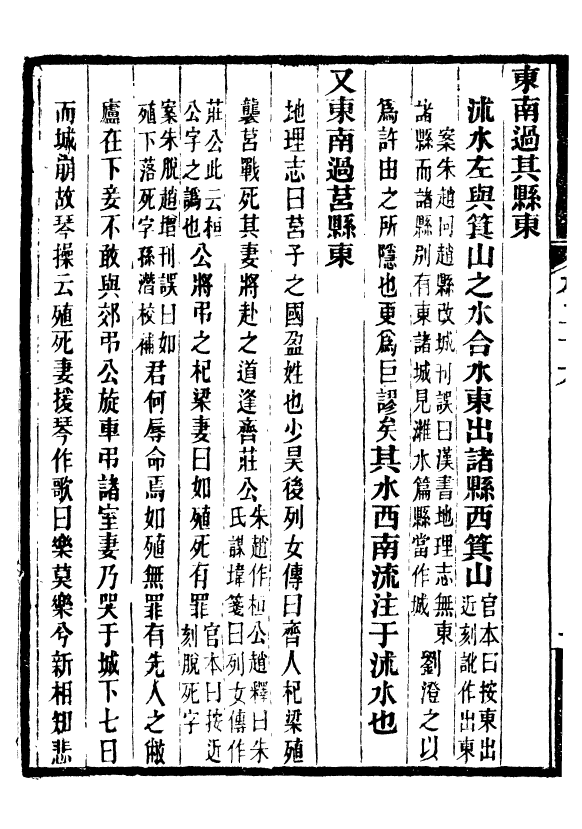 東南過其縣東
沭水左與箕山之水合水東出諸縣西箕山官本曰按東出
近刻訛作出東
案朱趙同趙縣改城刊誤曰漢書地理志無東
諸縣而諸縣別有東諸城見濰水篇縣當作城
劉澄之以
爲許由之所隱也更爲巨謬矣其水西南流注于沭水也
又東南過莒縣東
地理志曰莒子之國盈姓也少昊後列女傳曰齊人杞梁殖
襲莒戰死其妻將赴之道逢齊莊公朱趙作桓公趙釋曰朱
氏謀瑋箋曰列女傳作
莊公此云桓
公字之譌也
公將弔之杞梁妻曰如殖死有罪官本曰按近
刻脫死字
案朱脫趙增刊誤曰如
殖下落死字孫潛校補
君何辱命焉如殖無罪有先人之敝
廬在下妾不敢與郊弔公旋車弔諸室妻乃哭于城下七日
而城崩故琴操云殖死妻援琴作歌曰樂莫樂兮新相知悲